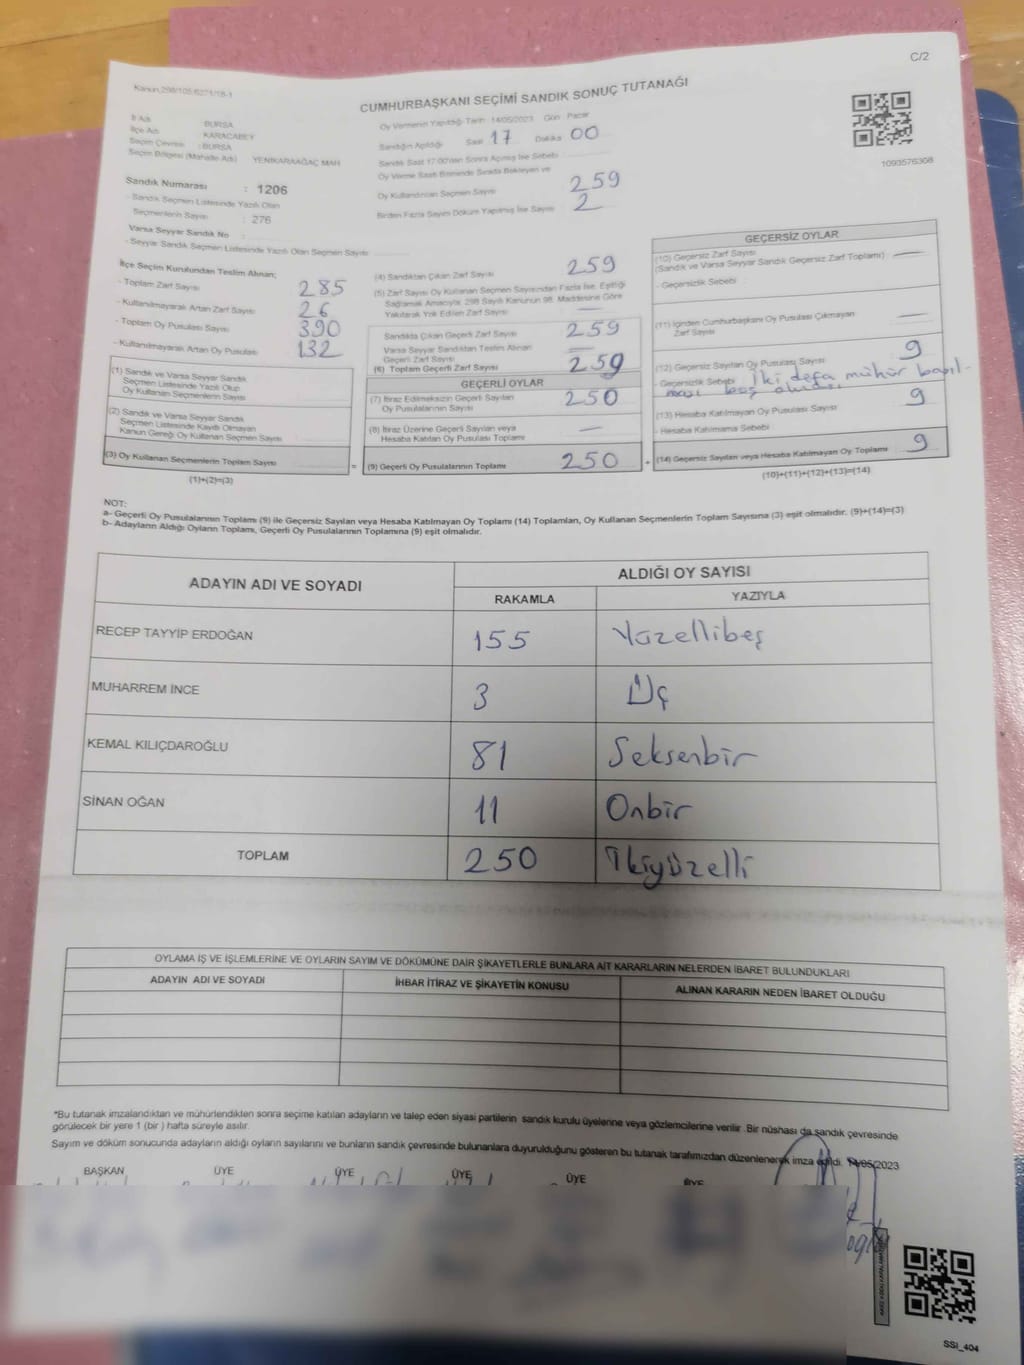 C/2
Kanun,298/105;6271/18-1
CUMHURBAŞKANI SEÇİMİ SANDIK SONUÇ TUTANAĞI
İl Adı : BURSA
İlçe Adı : KARACABEY
Seçim Çevresi : BURSA
Seçim Bölgesi (Mahalle Adı) YENİKARAAĞAÇ MAH
Sandık Numarası : 1206
- Sandık Seçmen Listesinde Yazılı Olan
Seçmenlerin Sayısı : 276
Varsa Seyyar Sandık No :
- Seyyar Sandık Seçmen Listesinde Yazılı Olan Seçmen Sayısı
Oy Vermenin Yapıldığı Tarih : 14/05/2023 Gün : Pazar
Sandığın Açıldığı Saat 17 Dakika 00
Sandık Saat 17:00'den Sonra Açılmış İse Sebebi
Oy Verme Saati Bitiminde Sırada Bekleyen ve
Oy Kullandırılan Seçmen Sayısı 259
Birden Fazla Sayım Döküm Yapılmış İse Sayısı 2
1093576308
İlçe Seçim Kurulundan Teslim Alınan;
- Toplam Zarf Sayısı 285
- Kullanılmayarak Artan Zarf Sayısı 26
- Toplam Oy Pusulası Sayısı 390
- Kullanılmayarak Artan Oy Pusulası 132
(1) Sandık ve Varsa Seyyar Sandık
Seçmen Listesinde Yazılı Olup
Oy Kullanan Seçmenlerin Sayısı
(2) Sandık ve Varsa Seyyar Sandık
Seçmen Listesinde Kayıtlı Olmayan
Kanun Gereği Oy Kullanan Seçmen Sayısı
(3) Oy Kullanan Seçmenlerin Toplam Sayısı =
(1)+(2)=(3)
(4) Sandıktan Çıkan Zarf Sayısı 259
(5) Zarf Sayısı Oy Kullanan Seçmen Sayısından Fazla İse, Eşitliği
Sağlamak Amacıyla, 298 Sayılı Kanunun 98. Maddesine Göre
Yakılarak Yok Edilen Zarf Sayısı —
Sandıkta Çıkan Geçerli Zarf Sayısı 259
Varsa Seyyar Sandıktan Teslim Alınan
Geçerli Zarf Sayısı —
(6) Toplam Geçerli Zarf Sayısı 259
GEÇERLİ OYLAR
(7) İtiraz Edilmeksizin Geçerli Sayılan
Oy Pusulalarının Sayısı 250
(8) İtiraz Üzerine Geçerli Sayılan veya
Hesaba Katılan Oy Pusulası Toplamı —
(9) Geçerli Oy Pusulalarının Toplamı 250 +
GEÇERSİZ OYLAR
(10) Geçersiz Zarf Sayısı
(Sandık ve Varsa Seyyar Sandık Geçersiz Zarf Toplamı) —
- Geçersizlik Sebebi
(11) İçinden Cumhurbaşkanı Oy Pusulası Çıkmayan
Zarf Sayısı —
(12) Geçersiz Sayılan Oy Pusulası Sayısı 9
- Geçersizlik Sebebi İki defa mühür basıl-
ması boş
(13) Hesaba Katılmayan Oy Pusulası Sayısı 9
- Hesaba Katılmama Sebebi
(14) Geçersiz Sayılan veya Hesaba Katılmayan Oy Toplamı 9
(10)+(11)+(12)+(13)=(14)
NOT:
a- Geçerli Oy Pusulalarının Toplamı (9) ile Geçersiz Sayılan veya Hesaba Katılmayan Oy Toplamı (14) Toplamları, Oy Kullanan Seçmenlerin Toplam Sayısına (3) eşit olmalıdır. (9)+(14)=(3)
b- Adayların Aldığı Oyların Toplamı, Geçerli Oy Pusulalarının Toplamına (9) eşit olmalıdır.
ADAYIN ADI VE SOYADI ALDIĞI OY SAYISI
RAKAMLA YAZIYLA
RECEP TAYYİP ERDOĞAN 155 Yüzellibeş
MUHARREM İNCE 3 Üç
KEMAL KILIÇDAROĞLU 81 Seksenbir
SİNAN OĞAN 11 Onbir
TOPLAM 250 İkiyüzelli
OYLAMA İŞ VE İŞLEMLERİNE VE OYLARIN SAYIM VE DÖKÜMÜNE DAİR ŞİKAYETLERLE BUNLARA AİT KARARLARIN NELERDEN İBARET BULUNDUKLARI
ADAYIN ADI VE SOYADI İHBAR İTİRAZ VE ŞİKAYETİN KONUSU ALINAN KARARIN NEDEN İBARET OLDUĞU
*Bu tutanak imzalandıktan ve mühürlendikten sonra seçime katılan adayların ve talep eden siyasi partilerin sandık kurulu üyelerine veya gözlemcilerine verilir .Bir nüshası da sandık çevresinde
görülecek bir yere 1 (bir ) hafta süreyle asılır.
Sayım ve döküm sonucunda adayların aldığı oyların sayılarını ve bunların sandık çevresinde bulunanlara duyurulduğunu gösteren bu tutanak tarafımızdan düzenlenerek imza edildi. 14/05/2023
BAŞKAN ÜYE ÜYE ÜYE ÜYE ÜYE
SSİ_404